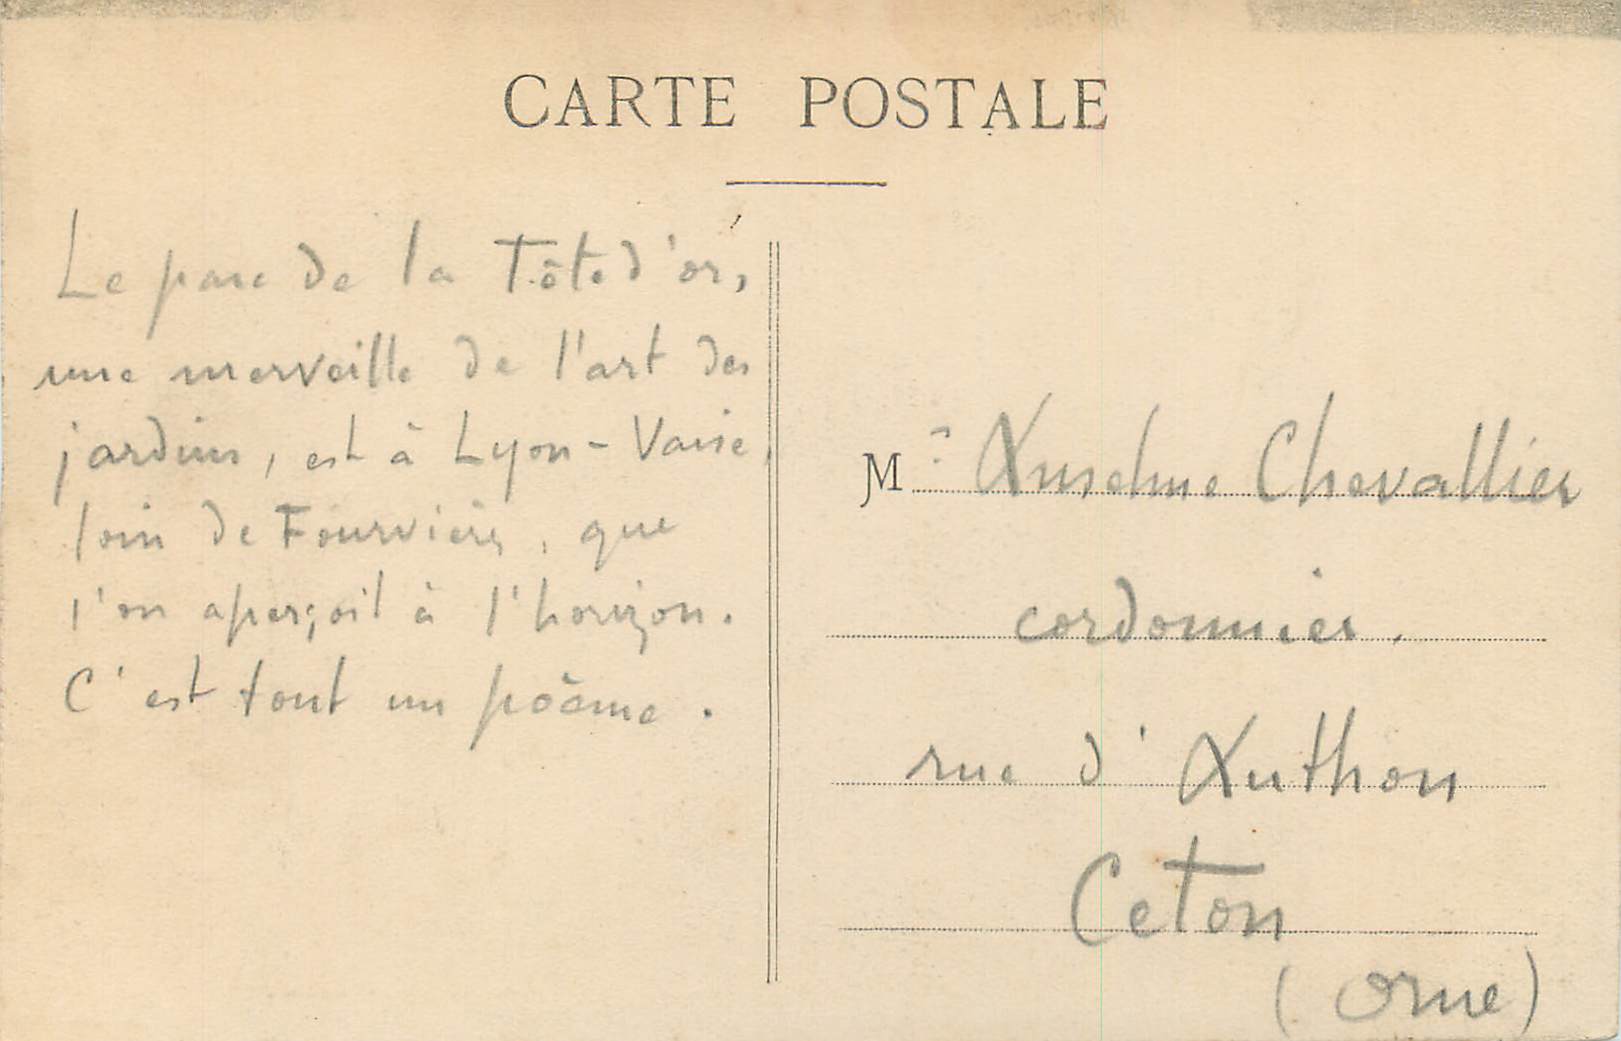 CARTE POSTALE
Le parc de la Tête d'or,
une merveille de l'art des
jardins, est à Lyon-Vaise,
loin de Fourvière, que
l'on aperçoit à l'horizon.
C'est tout un poème.
Mr Anselme Chevallier
cordonnier.
rue d'Authon
Ceton
(Orne)